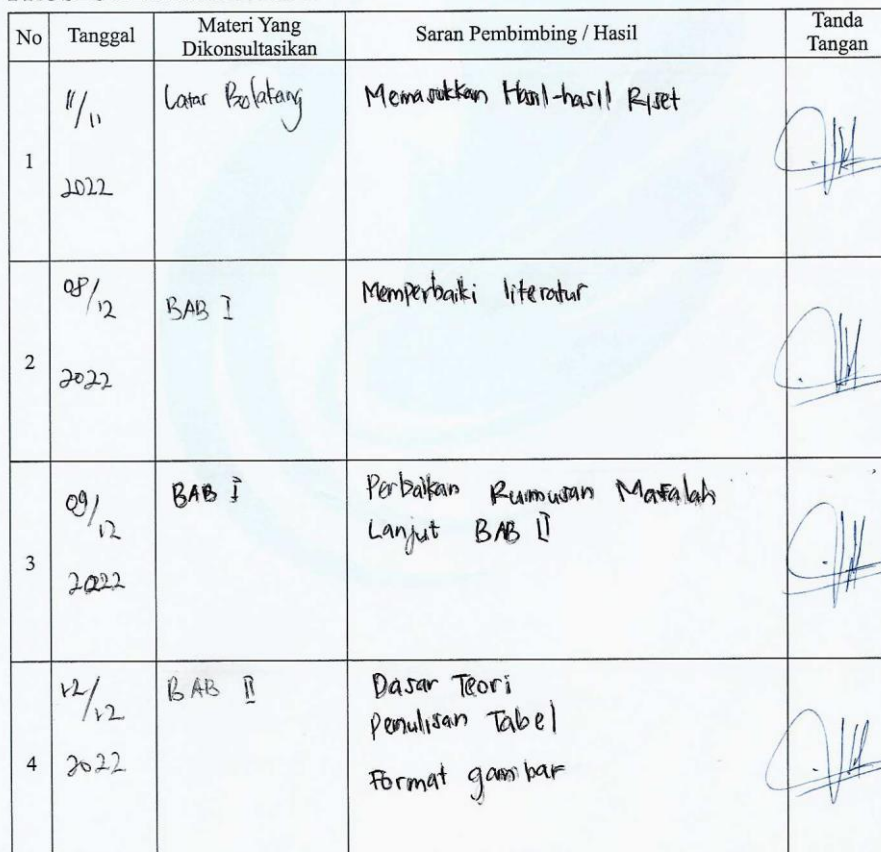 No Tanggal Materi Yang Dikonsultasikan Saran Pembimbing / Hasil Tanda Tangan
1 11/11 2022 Latar Belakang Memasukkan Hasil-hasil Riset
2 08/12 2022 BAB I Memperbaiki literatur
3 09/12 2022 BAB I Perbaikan Rumusan Masalah
Lanjut BAB II
4 12/12 2022 BAB II Dasar Teori
Penulisan Tabel
Format gambar